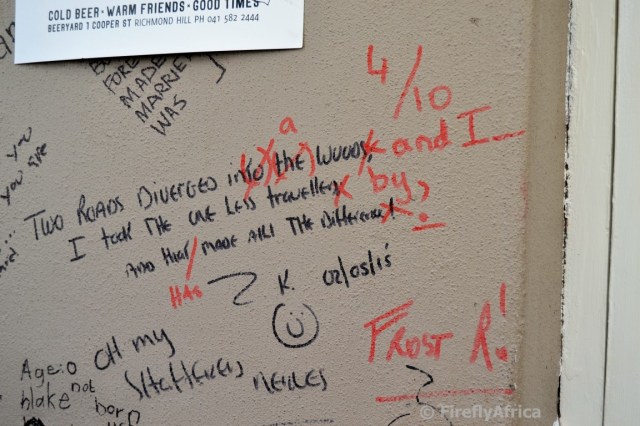 COLD BEER · WARM FRIENDS · GOOD TIMES
BEERYARD 1 COOPER ST RICHMOND HILL PH 041 582 2444
FORE
MADE
MARRIE
WAS
you
you are
4/10
a
TWO ROADS DIVERGED into the WOODS, and I
I took THE ONE LESS travelled, by
AND that MADE All THE Difference!
HAS
K. 02/05/15
FROST R.!
OH my
SHATTERED NERVES
Age: 0
blake not born
© FireflyAfrica